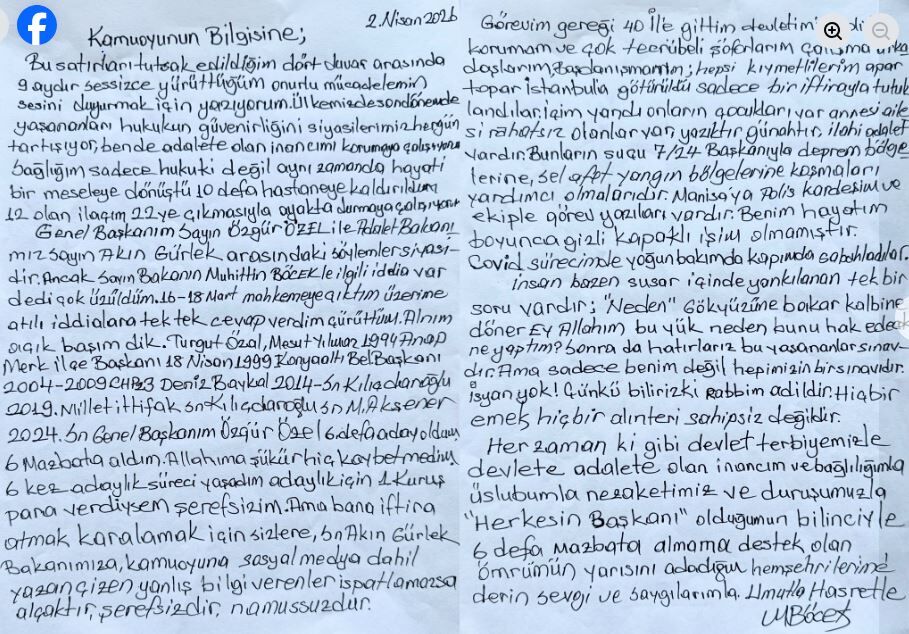 2 Nisan 2026
Kamuoyunun Bilgisine;
Bu satırları tutsak edildiğim dört duvar arasında
9 aydır sessizce yürüttüğüm onurlu mücadelemin
sesini duyurmak için yazıyorum. Ülkemizde son dönemde
yaşananları hukukun güvenirliğini siyasilerimiz hergün
tartışıyor, bende adalete olan inancımı korumaya çalışıyorum
Sağlığım sadece hukuki değil aynı zamanda hayati
bir meseleye dönüştü 10 defa hastaneye kaldırıldım
12 olan ilacım 22 ye çıkmasıyla ayakta durmaya çalışıyorum
Genel Başkanım Sayın Özgür ÖZEL ile Adalet Bakanı
mız Sayın Akın Gürlek arasındaki söylemler siyasi-
dir. Ancak Sayın Bakanın Muhittin BÖCEK le ilgili iddia var
dedi çok üzüldüm. 16-18 Mart mahkemeye çıktım üzerime
atılı iddialara tek tek cevap verdim çürüttüm. Alnım
açık başım dik. Turgut Özal, Mesut Yılmaz 1994 Anap
Merk ilçe Başkanı 18 Nisan 1999 Konyaaltı Bel Başkanı
2004-2009 CHP Deniz Baykal 2014-Sn Kılıçdaroğlu
2019. Millet ittifakı Sn Kılıçdaroğlu Sn M. Akşener
2024. Sn Genel Başkanım Özgür Özel 6 defa aday oldum
6 Mazbata aldım. Allahıma şükür hiç kaybetmedim
6 kez adaylık süreci yaşadım adaylık için 1 Kuruş
para verdiysem şerefsizim. Ama bana iftira
atmak karalamak için sizlere, Sn Akın Gürlek
Bakanımıza, kamuoyuna sosyal medya dahil
yazan çizen yanlış bilgi verenler ispatlamazsa
alçaktır, şerefsizdir, namussuzdur.
Görevim gereği 40 İl'e gittim devletim
korumam ve çok tecrübeli şoförlarım çalışma arka
daşlarım, Başdanışmanım; hepsi kıymetlilerim apar
topar İstanbula götürüldü sadece bir iftirayla tutuk
landılar. içim yandı onların çocukları var annesi aile
si rahatsız olanlar var, yazıktır, günahtır, ilahi adalet
vardır. Bunların suçu 7/24 Başkanıyla deprem bölge
lerine, sel afet yangın bölgelerine koşmaları
yardımcı olmalarıdır. Manisa'ya Polis kardeşim ve
ekiple görev yazıları vardır. Benim hayatım
boyunca gizli kapaklı işim olmamıştır.
Covid sürecimde yoğun bakımda kapımda sabahladılar.
insan bazen susar içinde yankılanan tek bir
soru vardır; "Neden" Gökyüzüne bakar kalbine
döner Ey Allahım bu yük neden bunu hak edecek
ne yaptım? Sonra da hatırlarız bu yaşananlar sınav-
dır. Ama sadece benim değil hepimizin bir sınavıdır.
isyan yok! Çünkü biliriz ki Rabbim adildir. Hiçbir
emek hiçbir alınteri sahipsiz değildir.
Her zaman ki gibi devlet terbiyemizle
devlete adalete olan inancım ve bağlılığımla
üslubumla nezaketimiz ve duruşumuzla
"Herkesin Başkanı" olduğumun bilinciyle
6 defa Mazbata almama destek olan
ömrümün yarısını adadığım hemşehrilerime
derin sevgi ve saygılarımla. Umutla Hasretle
MBöcek